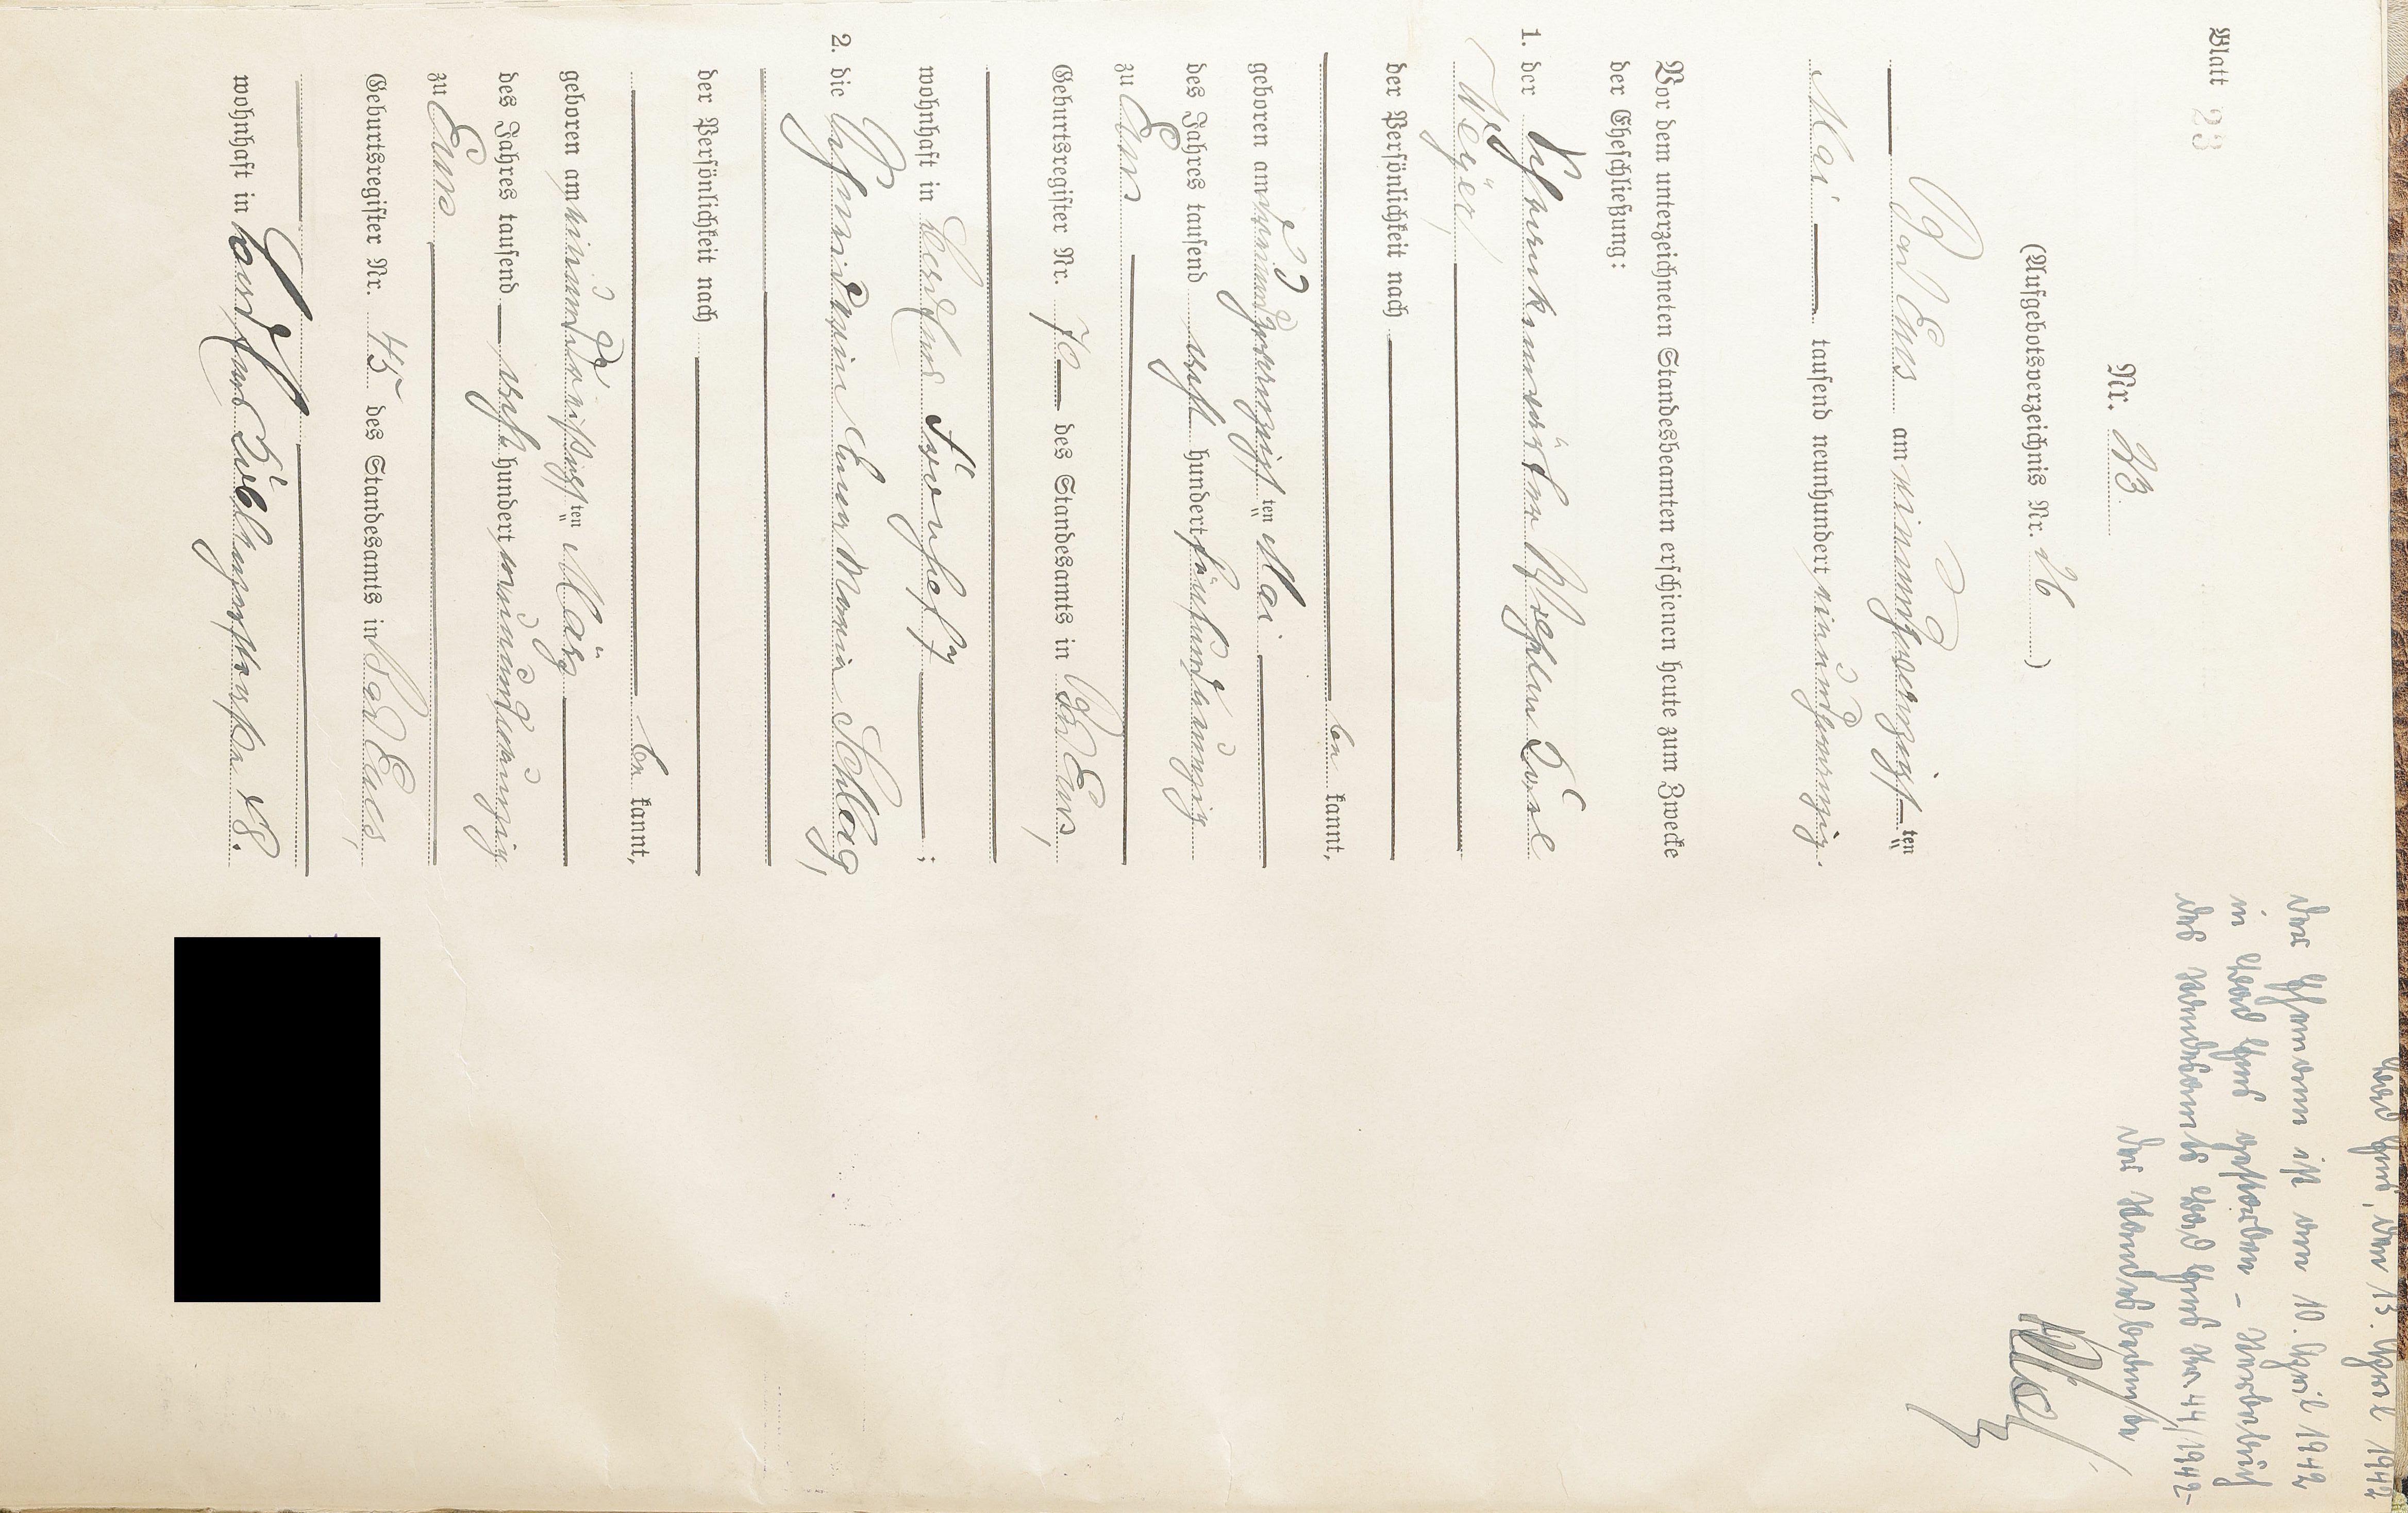 Blatt 23
Nr. 23.
(Aufgebotsverzeichnis Nr. 26)
Bad Ems am einundzwanzigsten
Mai tausend neunhundert einundzwanzig.
Vor dem unterzeichneten Standesbeamten erschienen heute zum Zwecke
der Eheschließung:
1. der Wilhelm Karl
Meyer,
der Persönlichkeit nach
be kannt,
geboren am neunundzwanzigsten Mai
des Jahres tausend acht hundert fünfundneunzig
zu Ems
Geburtsregister Nr. 70 des Standesamts in Bad Ems,
wohnhaft in
2. die Emma Maria Schlag,
der Persönlichkeit nach
be kannt,
geboren am einunddreißigsten März
des Jahres tausend acht hundert neunundneunzig
zu Ems
Geburtsregister Nr. 45 des Standesamts in Bad Ems,
wohnhaft in Bad Ems 48.
Bad Ems, den 13. April 1942
Der Ehemann ist am 10. April 1942
in Bad Ems gestorben - Sterbebuch
des Standesamts Bad Ems Nr. 44/1942-
Der Standesbeamte